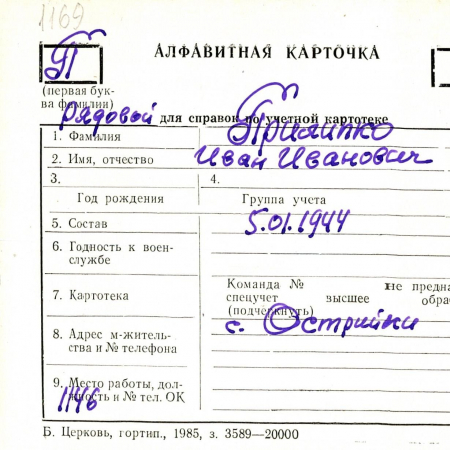 1169
П
АЛФАВИТНАЯ КАРТОЧКА
(первая бук-
ва фамилии)
Рядовой для справок по учетной картотеке
1. Фамилия Прилипко
2. Имя, отчество Иван Иванович
3. 4.
Год рождения Группа учета
5. Состав 5.01.1944
6. Годность к воен-
службе
Команда № не предна
7. Картотека спецучет высшее обра
(подчеркнуть)
с. Острийки
8. Адрес м-житель-
ства и № телефона
9. Место работы, дол-
жность и № тел. ОК
1146
Б. Церковь, гортип., 1985, з. 3589—20000